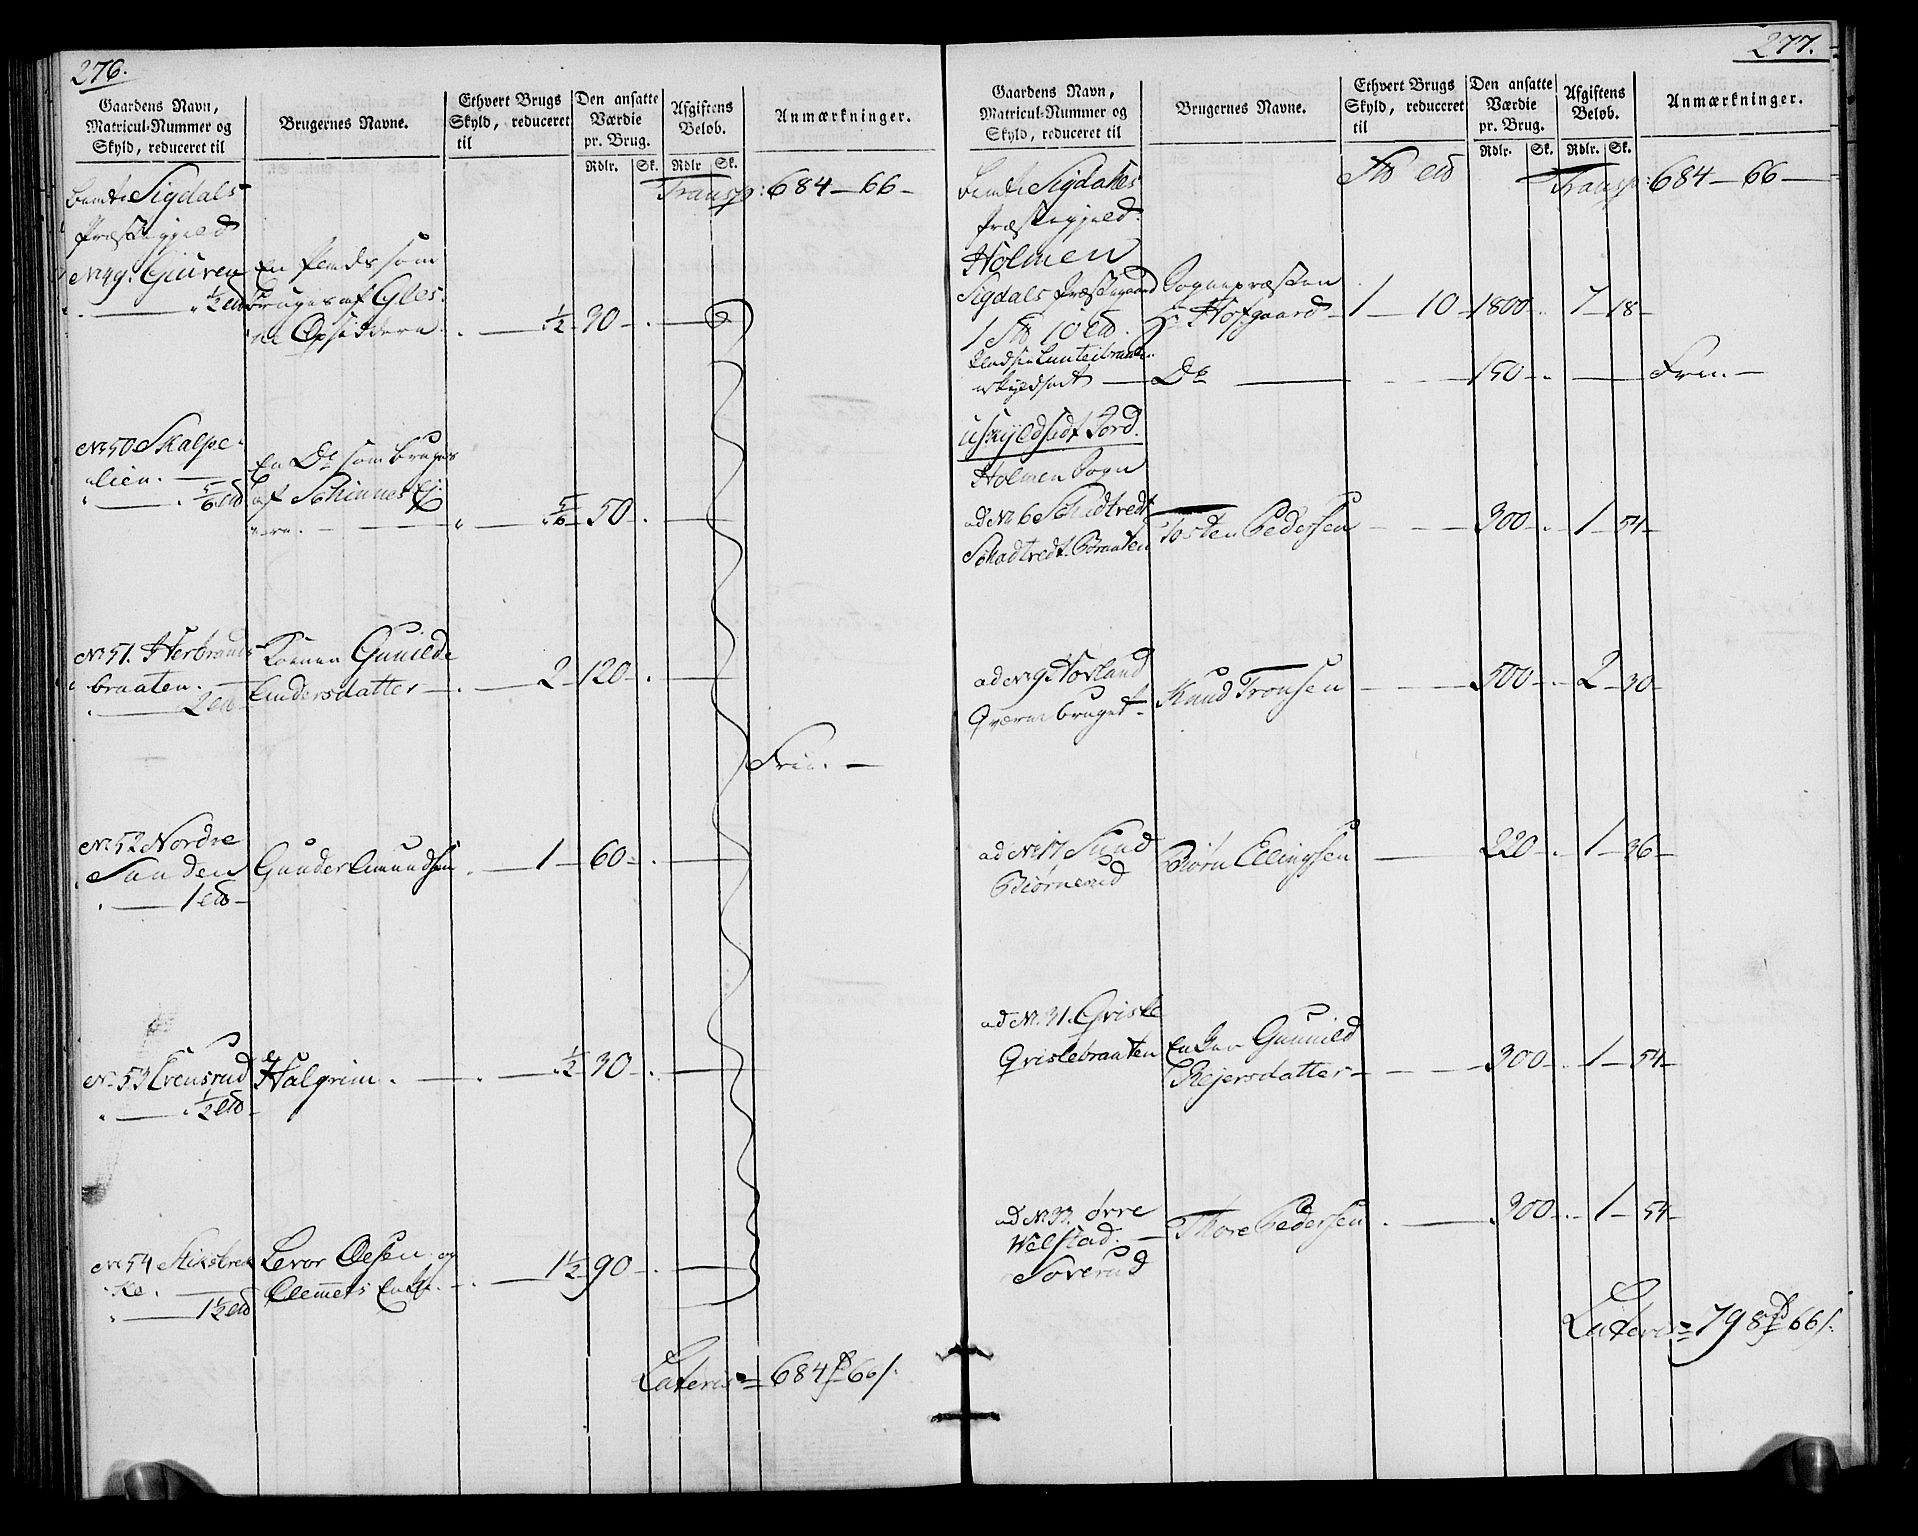 276.
Gaardens Navn,
Matricul-Nummer og
Skyld, reduceret til
Brugernes Navne.
Ethvert Brugs
Skyld, reduceret
til
Den ansatte
Værdie
pr. Brug.
Rdlr. Sk.
Afgiftens
Beløb.
Rdlr Sk.
Anmærkninger.
Sigdals
Præstegjeld
Transp: 684 - 66 -
No 49. Gjuren En Plads som
½ bruges af
Opsiddere ½ 30
No 50 Skalpe-
lien. En Do som bruges
5/6 af
5/6 50
No 51. Herbrands
braaten. Konen Gunilde
2 Andersdatter 2 120
Frie. -
No 52 Nordre
Sanden Gunder Amundsen 1 60
1
No 53 Evensrud Halgrim ½ 30
½
No 54 Levor Olsen og
1½ 90
1½
Lateris = 684 66
277.
Gaardens Navn,
Matricul-Nummer og
Skyld, reduceret til
Brugernes Navne.
Ethvert Brugs
Skyld, reduceret
til
Den ansatte
Værdie
pr. Brug.
Rdlr. Sk.
Afgiftens
Beløb.
Rdlr. Sk.
Anmærkninger.
Sigdahls
Præstegjeld
Transp: 684 - 66 -
Holmen
Sigdals Præstegaard Sognepræsten
1 10 Hr Hofgaard 1 10 1800 7 18
Pladsen
uskyldsat Do 150 Frie. -
uskyldsadt Jord.
Holmen Sogn
ad No 6 Skadtvedt
Skadtvedt Braaten Tosten Pedersen 300 1 54
ad No 9 Hovland
Qværnbruget Knud Tronsen 500 2 30
ad No 17 Sund
Biørnerud Biørn Ellingsen 220 1 36
ad No. 31. Qvisle
Qvislebraaten Enken Gunnild
Rejersdatter 300 1 54
ad No. 33. øvre
Welstad. Thore Pedersen 300 1 54
Soverud
Lateris = 798 66